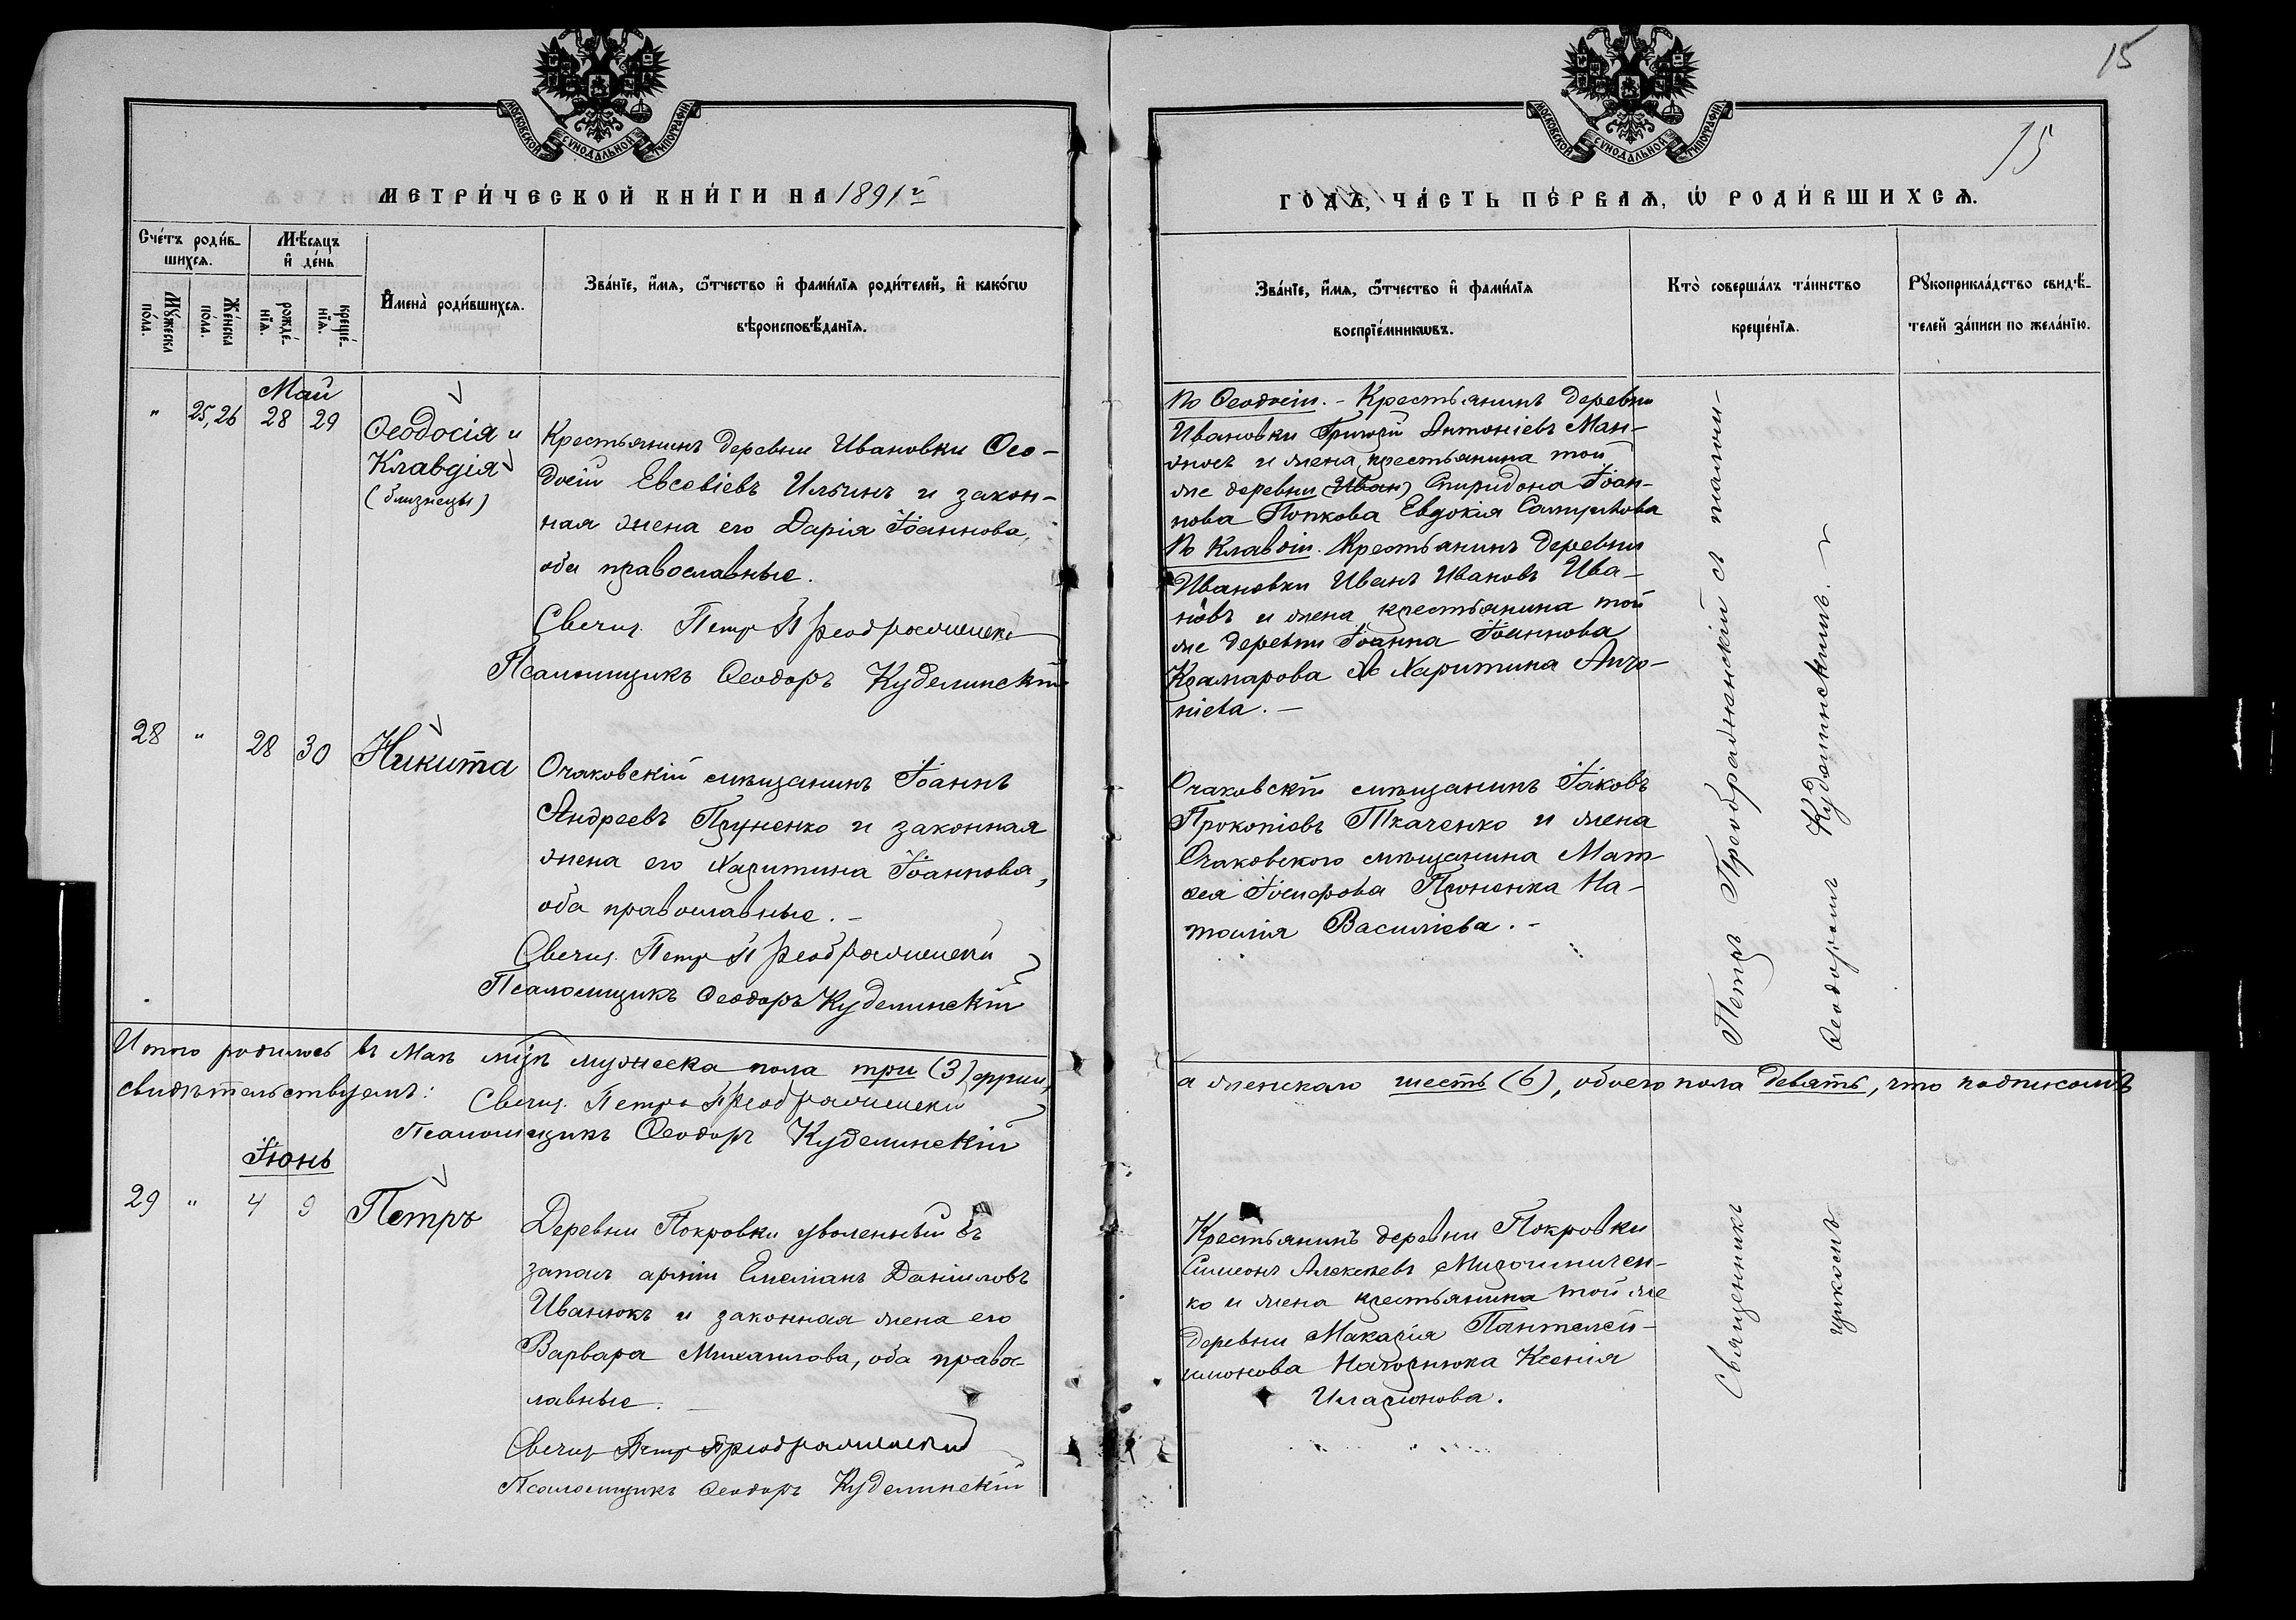 15
МОСКОВСКОЙ СУНОДАЛЬНОЙ ТИПОГРАФІИ
МОСКОВСКОЙ СУНОДАЛЬНОЙ ТИПОГРАФІИ
15
МЕТРИ́ЧЕСКОЙ КНИ́ГИ НА 1891 г
ГО́ДЪ, ЧА́СТЬ ПЕ́РВАѦ, Ѡ РОДИ́ВШИХСѦ.
Сче́тъ роди́в-
шихсѧ.
Мѣ́сѧцъ
и де́нь
Мꙋ́жеска
по́ла.
Же́нска
по́ла.
рожде́-
нїѧ.
креще́-
нїѧ.
Имена̀ роди́вшихсѧ.
Зва́нїе, и́мѧ, ѻ́тчество и фами́лїѧ роди́телей, и како́гѡ
вѣроисповѣ́данїѧ.
Зва́нїе, и́мѧ, ѻ́тчество и фами́лїѧ
воспрїе́мникѡвъ.
Кто̀ соверша́лъ та́инство
креще́нїѧ.
Рꙋкоприкла́дство свидѣ́-
телей за́писи по жела́нїю.
Май
" 25, 26 28 29
Ѳеодосія и
Клавдія
(близнецы)
Крестьянинъ деревни Ивановки Ѳео-
досій Евсевіевъ Ильинъ и закон-
ная жена его Дарія Іоаннова,
оба православные.
Свящ. Петръ Преображенскій
Псаломщикъ Ѳеодоръ Куделинскій
По Ѳеодосіи. - Крестьянинъ деревни
Ивановки Григорій Антоніевъ Ман-
и жена крестьянина той
же деревни (Иван) Спиридона Іоан-
нова Попкова Евдокія
По Клавдіи. Крестьянинъ деревни
Ивановки Иванъ Ивановъ Ива-
новъ и жена крестьянина той
же деревни Іоанна Іоаннова
Крамарова Харитина
ніева. -
28 " 28 30
Никита
Очаковскій мѣщанинъ Іоаннъ
Андреевъ и законная
жена его Харитина Іоаннова,
оба православные. -
Свящ. Петръ Преображенскій
Псаломщикъ Ѳеодоръ Куделинскій
Очаковскій мѣщанинъ Іаковъ
Прокопіевъ Ткаченко и жена
Очаковского мѣщанина Мат-
ѳея Іосифова На-
талія Василіева. -
Итого родилось въ Маѣ мцѣ мужеска пола три (3)
а женскаго шесть (6), обоего пола девять, что подписомъ
свидѣтельствуемъ:
Свящ. Петръ Преображенскій
Псаломщикъ Ѳеодоръ Куделинскій
Іюнь
29 " 4 9
Петръ
Деревни Покровки уволенный въ
запасъ арміи Емеліанъ Даніиловъ
Иванюкъ и законная жена его
Варвара Михаилова, оба правос-
лавные. -
Свящ. Петръ Преображенскій
Псаломщикъ Ѳеодоръ Куделинскій
Крестьянинъ деревни Покровки
Симеонъ Алексѣевъ Мирошничен-
ко и жена крестьянина той же
деревни Макарія Пантелеи-
монова Ксенія
Иларіонова.
Священникъ Петръ Преображенскій съ псалом-
щикомъ Ѳеодоромъ Куделинскимъ.